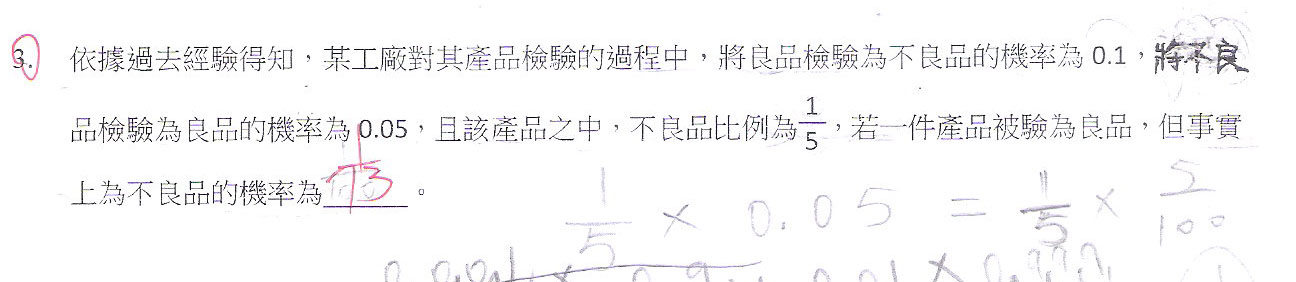 3. 依據過去經驗得知，某工廠對其產品檢驗的過程中，將良品檢驗為不良品的機率為 0.1，將不良
品檢驗為良品的機率為 0.05，且該產品之中，不良品比例為 1/5，若一件產品被驗為良品，但事實
上為不良品的機率為 1/73 。
1/5 × 0.05 = 1/5 × 5/100